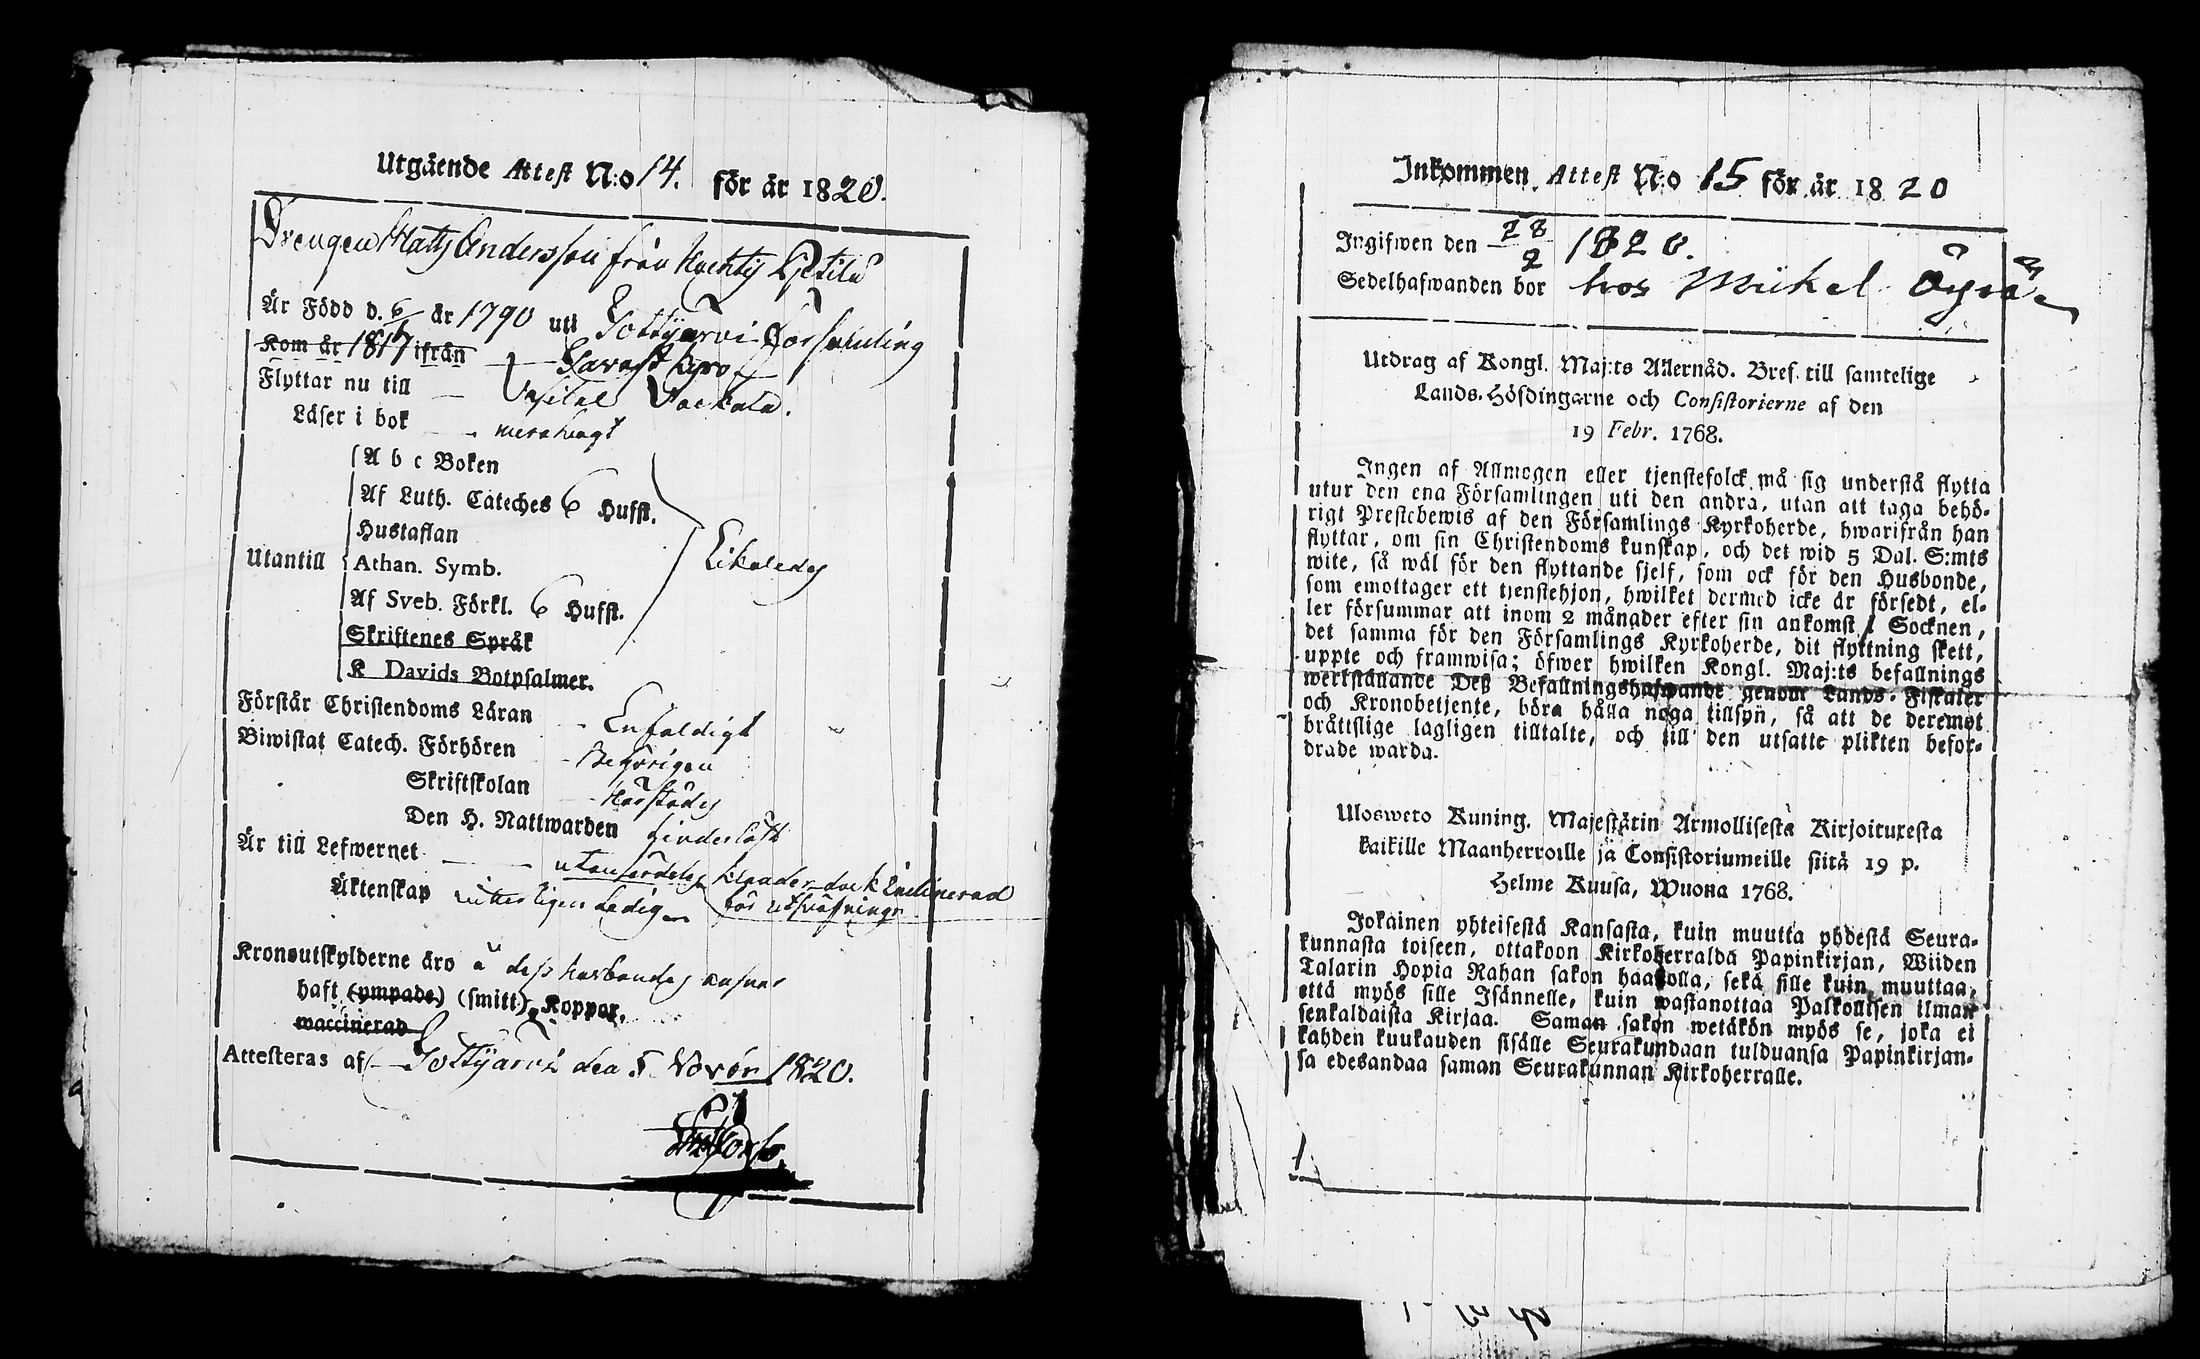 Utgående Attest N:o 14. för år 1820.
Drengen Matts Andersson från
Är Född d. 6/ år 1790 uti Tottijärvi Församling
Kom år 1817 ifrån Tavastkyro
Flyttar nu till
Läser i bok
A b c Boken
Af Luth. Cateches 6 Hufst.
Hustaflan
Utantill Athan. Symb. Likaledes
Af Sveb. Förkl. 6 Hufst.
Skriftenes Språk
K Davids Botpsalmer.
Förstår Christendoms Läran Enfaldigt
Biwistat Catech. Förhören Behörigen
Skriftskolan Härstädes
Den H. Nattwarden
Är till Lefwernet
Äktenskap Ledig
Kronoutskylderne äro å dess husbondes
haft (ympade) (smitt) Koppor.
waccinerad
Attesteras af Tottijärvi den 5 1820.
Inkommen Attest N:o 15 för år 1820
Ingifwen den 28/2 1820.
Sedelhafwanden bor hos Mickel
Utdrag af Kongl. Maj:ts Allernåd. Bref till samtelige
Lands-Höfdingarne och Consistorierne af den
19 Febr. 1768.
Ingen af Allmogen eller tjenstefolck må sig understå flytta
utur den ena Församlingen uti den andra, utan att taga behö-
rigt Prestebewis af den Församlings Kyrkoherde, hwarifrån han
flyttar, om sin Christendoms kunskap, och det wid 5 Dal. S:mts
wite, så wäl för den flyttande sjelf, som ock för den Husbonde,
som emottager ett tjenstehjon, hwilket dermed icke är försedt, el-
ler försummar att inom 2 månader efter sin ankomst i Socknen,
det samma för den Församlings Kyrkoherde, dit flyttning skett,
uppte och framwisa; öfwer hwilken Kongl. Maj:ts befallnings
werkställande Deß Befallningshafwande genom Lands-Fiskaler
och Kronobetjente, böra hålla noga tillsyn, så att de deremot
bråttslige lagligen tilltalte, och till den utsatte plikten befor-
drade warda.
Ulosweto Kuning. Majestätin Armollisesta Kirjoituxesta
kaikille Maanherroille ja Consistoriumeille siitä 19 p.
Helme Kuusa, Wuona 1768.
Jokainen yhteisestä Kansasta, kuin muutta yhdestä Seura-
kunnasta toiseen, ottakoon Kirkoherralda Papinkirjan, Wiiden
Talarin Hopia Rahan sakon haasolla, sekä sille kuin muuttaa,
että myös sille Isännelle, kuin wastanottaa Palkollisen ilman
senkaldaista Kirjaa. Saman sakon wetäkön myös se, joka ei
kahden kuukauden sisälle Seurakundaan tulduansa Papinkirjan-
sa edesandaa saman Seurakunnan Kirkoherralle.